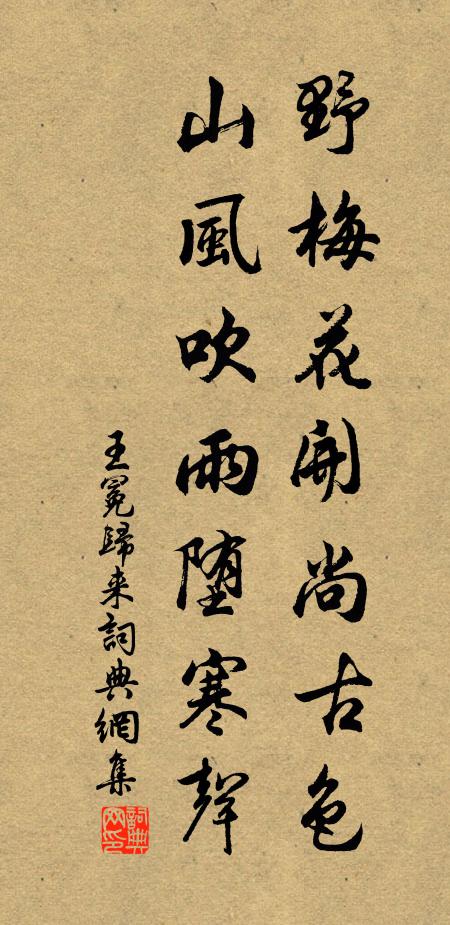 野梅花開尚古色
山風吹雨墮寒聲
王冕歸来詞典網集
詞典网印